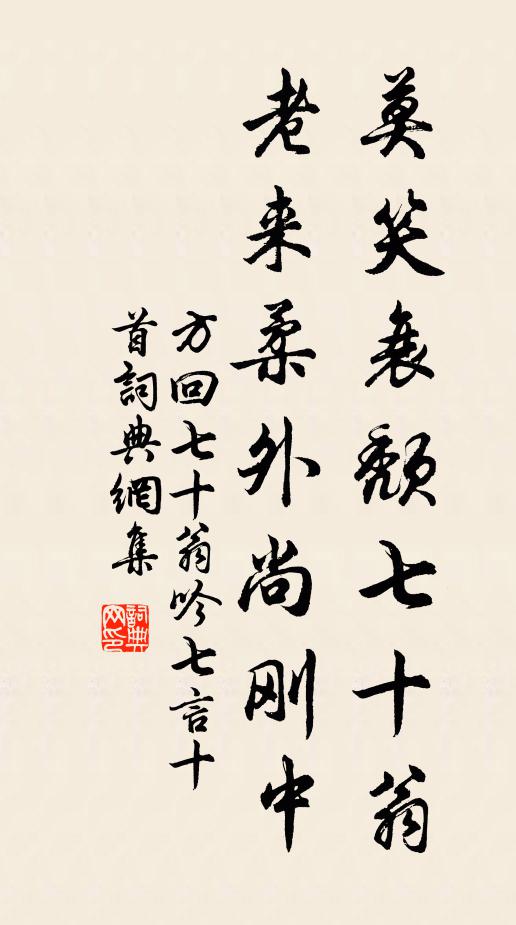 莫笑衰颓七十翁
老来柔外尚刚中
方回七十翁吟七言十
首詞典網集
詞典网印